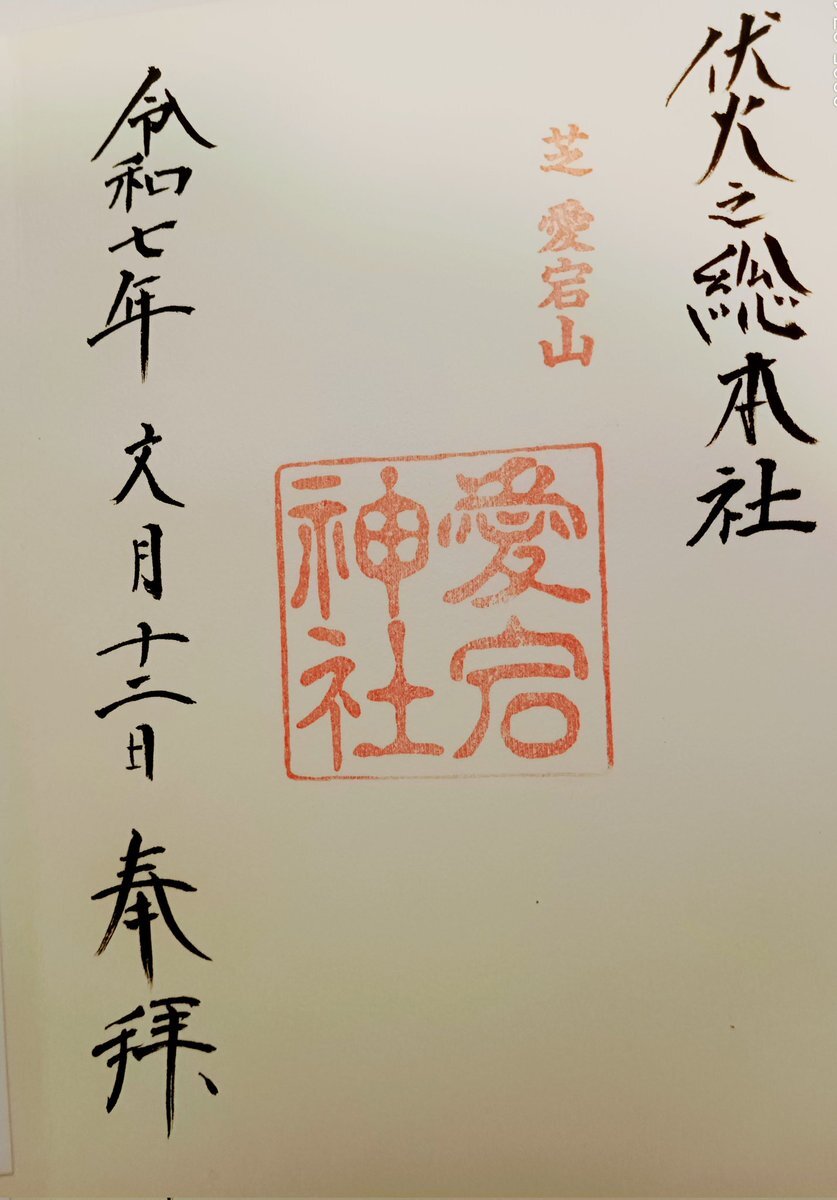 伏火之総本社
芝 愛宕山
愛宕
神社
令和七年 文月十二日 奉拝